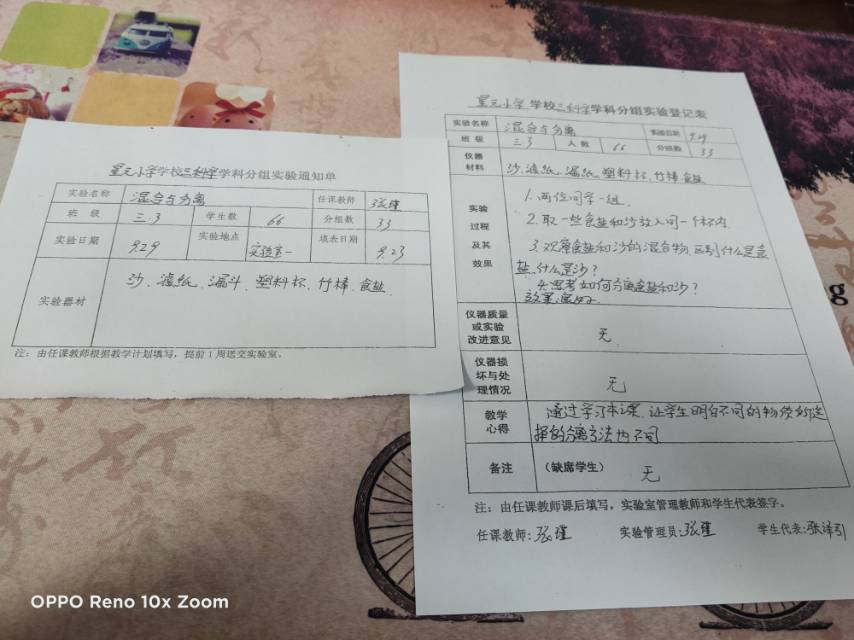 星元小学学校三科学学科分组实验通知单
实验名称 混合与分离 任课教师 张瑾
班 级 三.3 学生数 66 分组数 33
实验日期 9.29 实验地点 实验室一 填表日期 9.23
实验器材 沙、滤纸、漏斗、塑料杯、竹棒、食盐
注：由任课教师根据教学计划填写，提前1周送交实验室。
星元小学学校三科学学科分组实验登记表
实验名称 混合与分离 实验日期 9.29
班 级 三3 人 数 66 分组数 33
仪器材料 沙.滤纸、漏纸.塑料杯、竹棒.食盐
实验过程及其效果
1.两位同学一组.
2.取一些食盐和沙放入同一个杯内
3.观察食盐和沙的混合物,区别什么是食
盐.什么是沙?
4.思考如何分离食盐和沙?
效果:良好.
仪器质量或实验改进意见 无.
仪器损坏与处理情况 无
教学心得 通过学习本课,让学生明白不同的物质所选
择的分离方法也不同
备注 (缺席学生) 无
注：由任课教师课后填写，实验室管理教师和学生代表签字。
任课教师:张瑾 实验管理员:张瑾 学生代表:张译引
OPPO Reno 10x Zoom